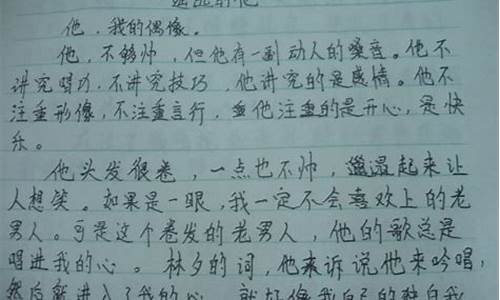 的他
他,我的偶像。
他,不够帅,但他有一副动人的嗓音。他不
讲究唱功,不讲究技巧,他讲究的是感情。他不
注重形像,不注重言行,他注重的是开心,是快
乐。
他头发很卷,一点也不帅,邋遢起来让
人想笑。如果是一眼,我一定不会喜欢上的老
男人。可是这个卷发的老男人,他的歌总是
唱进我的心。林夕的词,他来诉说他来吟唱,
然后就进入了我的心,就好像我自己的独白我